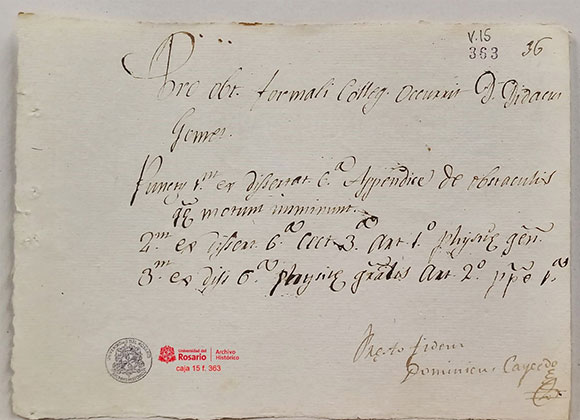 V.15
363 36
Pro obt. formali Colleg. Occurrit D. Didacus
Gomes.
Punctũ 1.m ex dissertat. 6.a Appendice de obstaculis
quæ motum imminunt.
2.m ex dissert. 6.a sect. 3.a Art. 1.o physicæ gen.
3.m ex diss. 6.a physicæ gralis Art. 2.o ppe 1.a
Præsto fidem
Dominicus Caycedo
Universidad del
Rosario
Archivo
Histórico
caja 15 f. 363